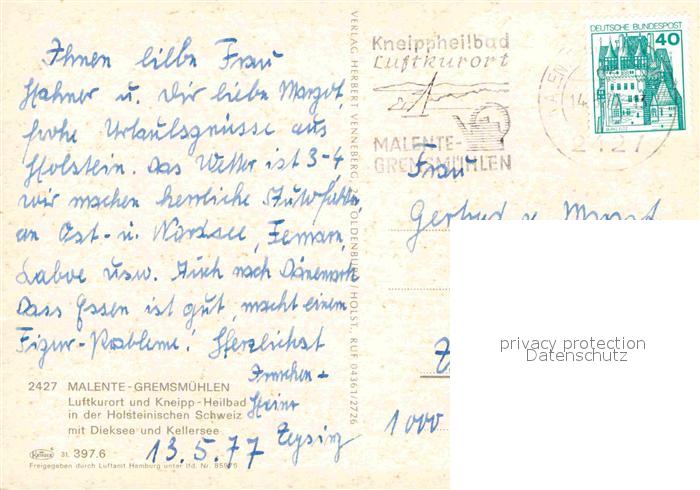 Ihnen liebe Frau
Hahner u. Dir liebe Margot,
frohe Urlaubsgrüsse aus
Holstein. Das Wetter ist 3-4,
wir machen herrliche Autofahrten
an Ost- u. Nordsee, Femarn,
Laboe usw. Auch nach Dänemark
Dass Essen ist gut, macht einem
Figur-Probleme! Herzlichst
Fränzchen +
Heinz
13.5.77
2427 MALENTE-GREMSMÜHLEN
Luftkurort und Kneipp-Heilbad
in der Holsteinischen Schweiz
mit Dieksee und Kellersee
31. 397.6
Freigegeben durch Luftamt Hamburg unter lfd. Nr.
VERLAG HERBERT VENNEBERG, OLDENBURG/HOLST. RUF 04361/2726
Kneippheilbad
Luftkurort
MALENTE-
GREMSMÜHLEN
DEUTSCHE BUNDESPOST
40
2427
Frau
1000
privacy protection
Datenschutz